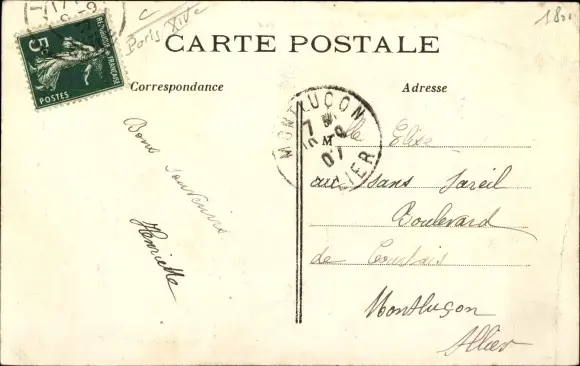 Paris XIVe
1800
5c
REPUBLIQUE FRANCAISE
POSTES
CARTE POSTALE
Correspondance
Adresse
Bons souvenirs
Henriette
MONTLUÇON
7 M
10-9
07
ALLIER
Mlle Elise
au sans Pareil
Boulevard
de Courtais
Montluçon
Allier